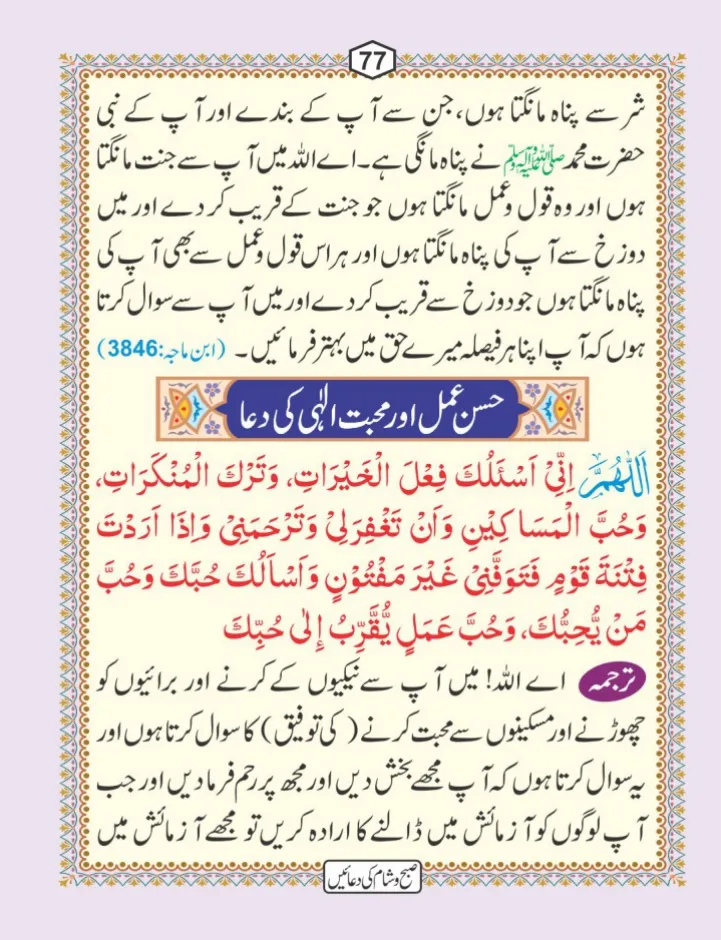 77
شر سے پناہ مانگتا ہوں، جن سے آپ کے بندے اور آپ کے نبی
حضرت محمد صلی اللہ علیہ وسلم نے پناہ مانگی ہے۔ اے اللہ میں آپ سے جنت مانگتا
ہوں اور وہ قول وعمل مانگتا ہوں جو جنت کے قریب کر دے اور میں
دوزخ سے آپ کی پناہ مانگتا ہوں اور ہر اس قول وعمل سے بھی آپ کی
پناہ مانگتا ہوں جو دوزخ سے قریب کر دے اور میں آپ سے سوال کرتا
ہوں کہ آپ اپنا ہر فیصلہ میرے حق میں بہتر فرمائیں۔ (ابن ماجہ:3846)
حسن عمل اور محبت الٰہی کی دعا
اَللّٰهُمَّ اِنِّىْ اَسْئَلُكَ فِعْلَ الْخَيْرَاتِ، وَتَرْكَ الْمُنْكَرَاتِ،
وَحُبَّ الْمَسَاكِيْنِ وَاَنْ تَغْفِرَلِىْ وَتَرْحَمَنِىْ وَاِذَا اَرَدْتَ
فِتْنَةَ قَوْمٍ فَتَوَفَّنِىْ غَيْرَ مَفْتُوْنٍ وَاَسْاَلُكَ حُبَّكَ وَحُبَّ
مَنْ يُّحِبُّكَ، وَحُبَّ عَمَلٍ يُّقَرِّبُ اِلٰى حُبِّكَ
ترجمہ اے اللہ! میں آپ سے نیکیوں کے کرنے اور برائیوں کو
چھوڑنے اور مسکینوں سے محبت کرنے (کی توفیق) کا سوال کرتا ہوں اور
یہ سوال کرتا ہوں کہ آپ مجھے بخش دیں اور مجھ پر رحم فرما دیں اور جب
آپ لوگوں کو آزمائش میں ڈالنے کا ارادہ کریں تو مجھے آزمائش میں
صبح وشام کی دعائیں